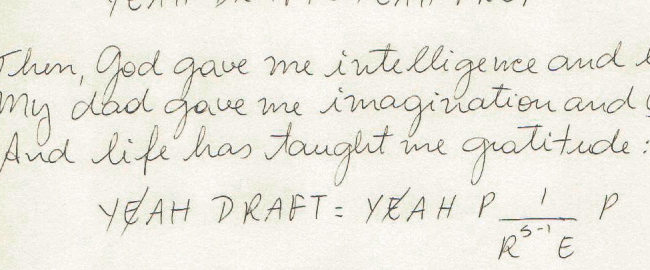 Then, God gave me intelligence and
My dad gave me imagination and
And life has taught me gratitude:
YEAH DRAFT = YEAH P 1/R^{S-1}E P